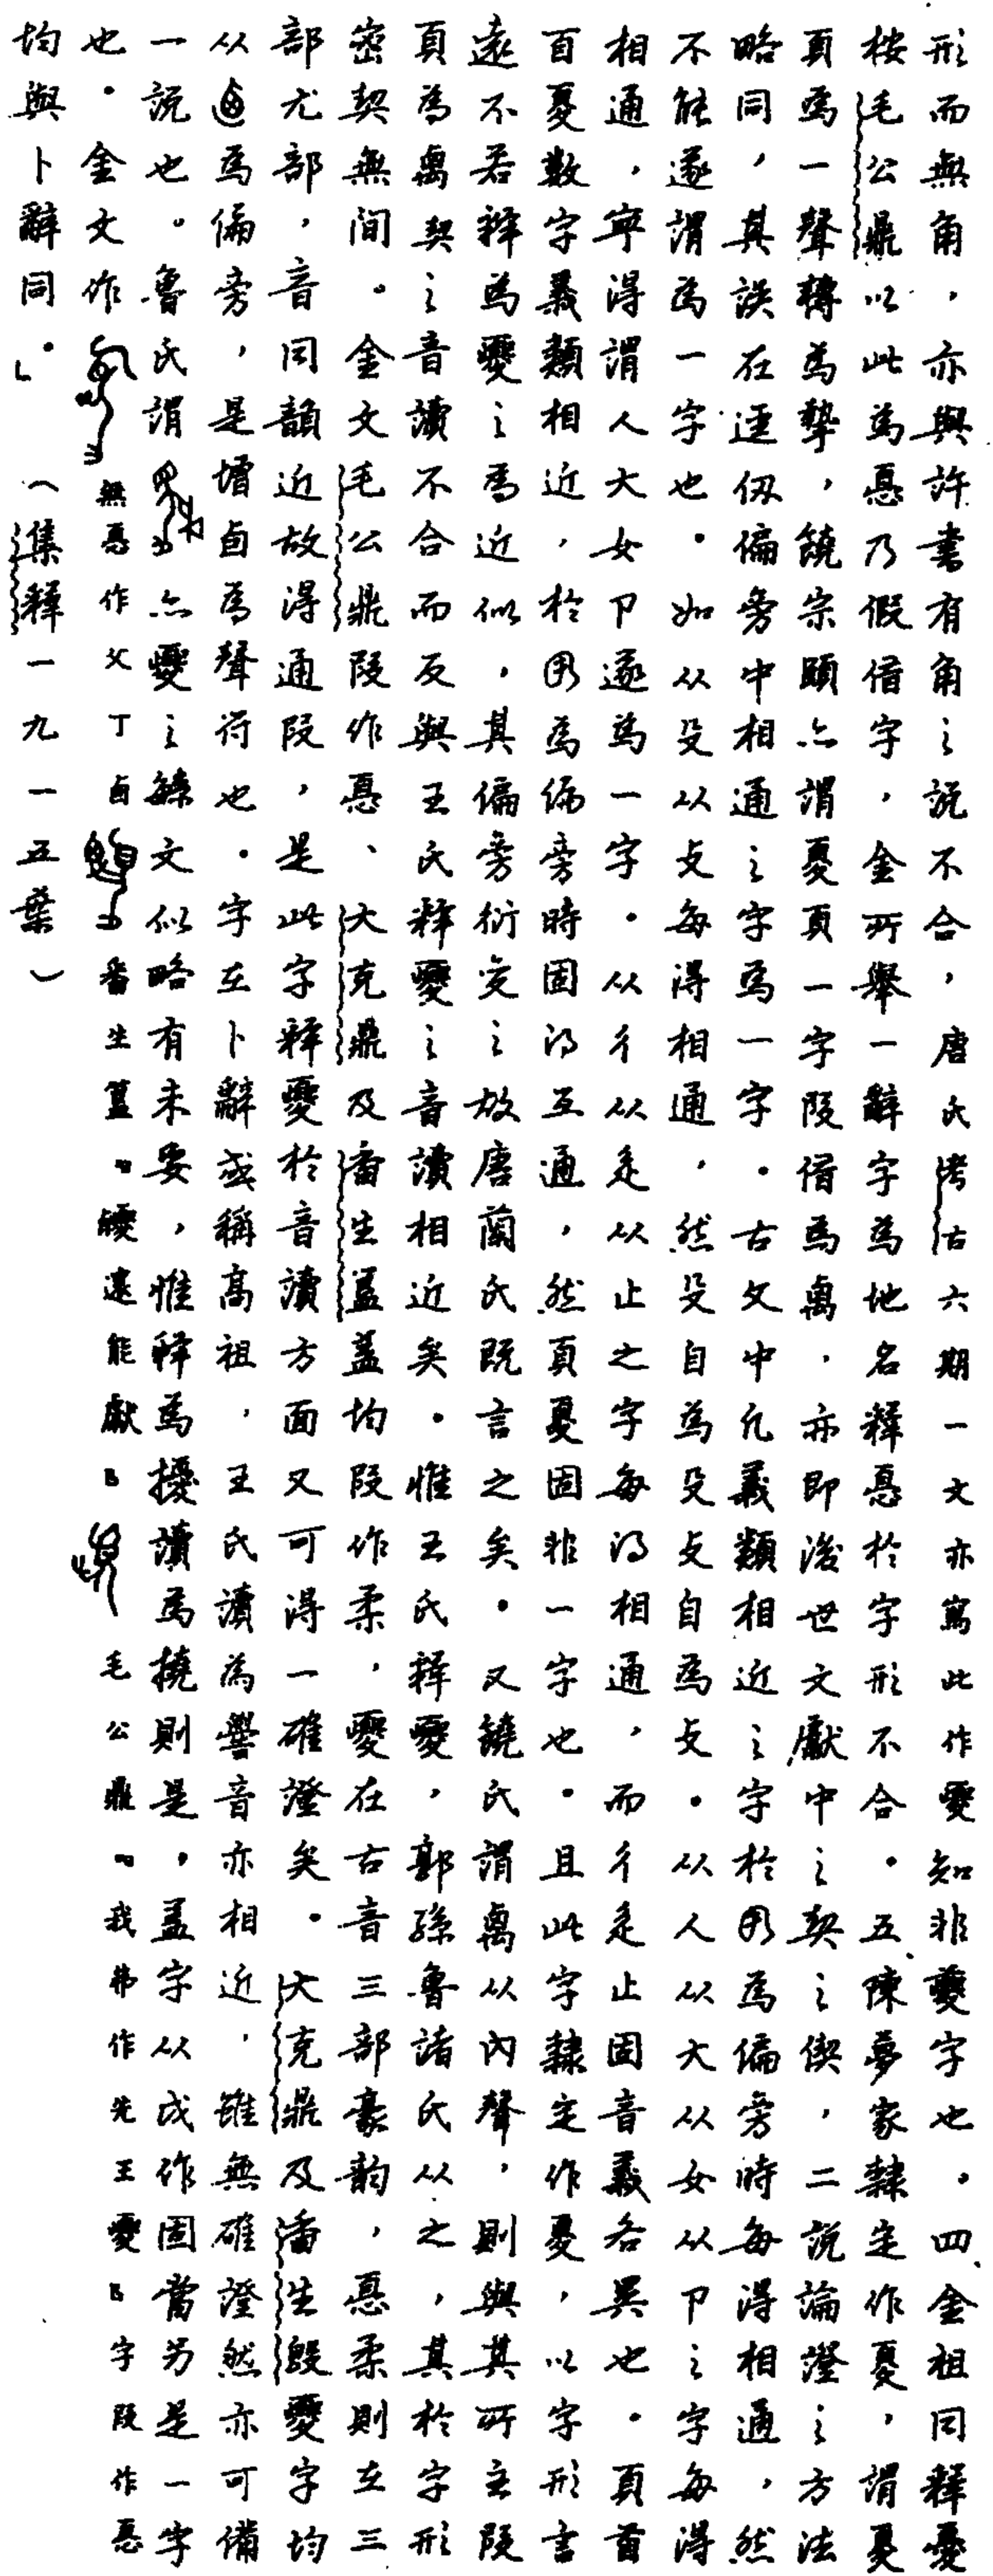 形而無角，亦與許書有角之說不合，唐氏考古六期一文亦寫此作夒知非夔字也。四、金祖同釋憂
桉毛公鼎以此為㥑乃假借字，金所舉一辭字為地名釋㥑於字形不合。五、陳夢家隸定作㥑，謂㥑
頁為一聲轉為摯，饒宗頤亦謂㥑頁一字叚借為禼，亦即後世文獻中之契之偰，二說論證之方法
略同，其誤在逕仞偏旁中相通之字為一字。古文中凡義類相近之字於用為偏旁時每得相通，然
不能遂謂為一字也。如从殳从攴每得相通，然殳自為殳攴自為攴。从人从大从女从卩之字每得
相通，寧得謂人大女卩遂為一字。从彳从辵从止之字每得相通，而彳辵止固音義各異也。頁首
百㥑數字義類相近，於用為偏旁時固得互通，然頁㥑固非一字也。且此字隸定作㥑，以字形言
遠不若釋為夒之為近似，其偏旁衍變之故唐蘭氏既言之矣。又饒氏謂禼从內聲，則與其所主叚
頁為禼契之音讀不合而反與王氏釋夒之音讀相近矣。惟王氏釋夒，郭孫魯諸氏从之，其於字形
密契無間。金文毛公鼎叚作㥑、大克鼎及番生蓋蓋均叚作柔，夒在古音三部豪韵，㥑柔則在三
部尤部，音同韻近故得通叚，是此字釋夒於音讀方面又可得一確證矣。大克鼎及潘生𣪘夒字均
从卣為偏旁，是增卣為聲符也。字在卜辭或稱高祖，王氏讀為嚳音亦相近，雖無確證然亦可備
一說也。魯氏謂亦夒之緐文似略有未安，惟釋為擾讀為撓則是，蓋字从戌作固當另是一字
也。金文作無㥑作父丁卣番生簋「夒遠能獻」毛公鼎「我弗作先王夒」字叚作㥑
均與卜辭同。」（集釋一九一五葉）